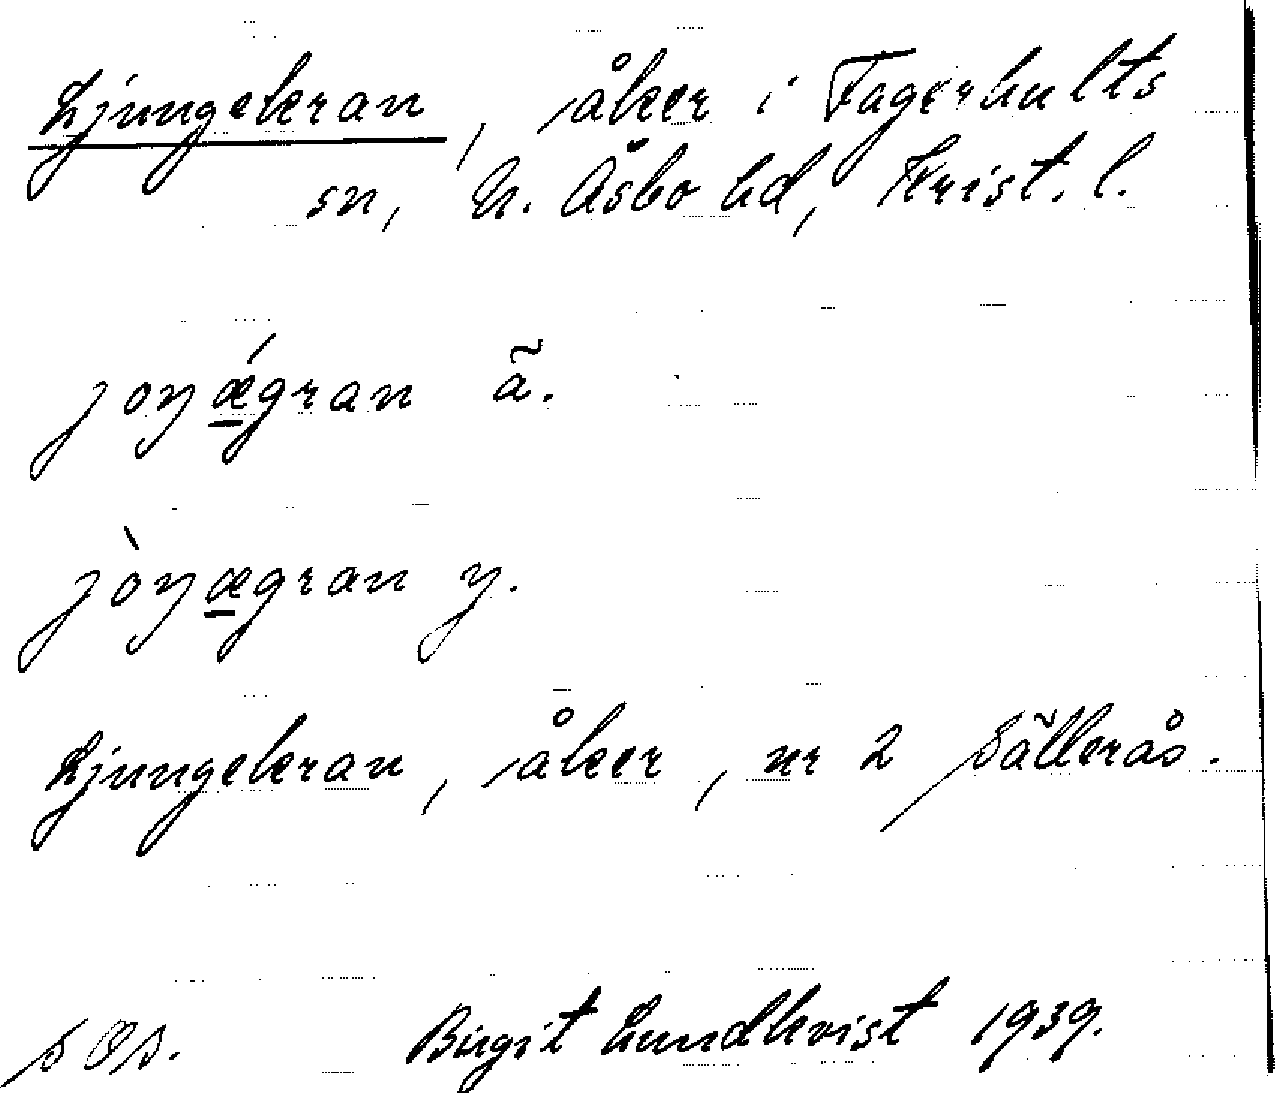 Ljungekran, åker i Fagerhults
sn, N. Åsbo hd, Krist. l.
joŋǽgran ã.
jòŋægran y.
Ljungekran, åker, nr 2 Sällerås.
Birgit Lundkvist 1939.